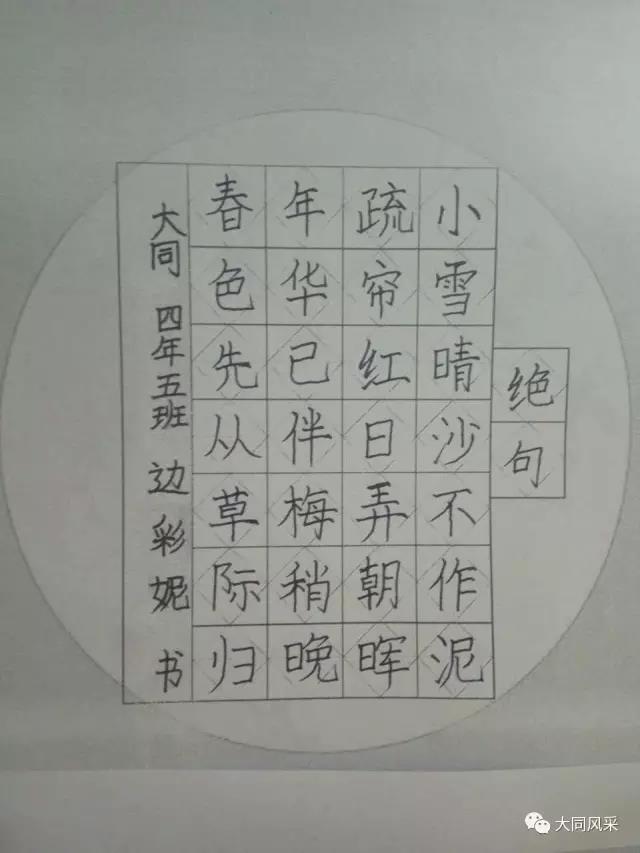 绝句
小雪晴沙不作泥
疏帘红日弄朝晖
年华已伴梅稍晚
春色先从草际归
大同 四年五班 边彩妮 书
大同风采